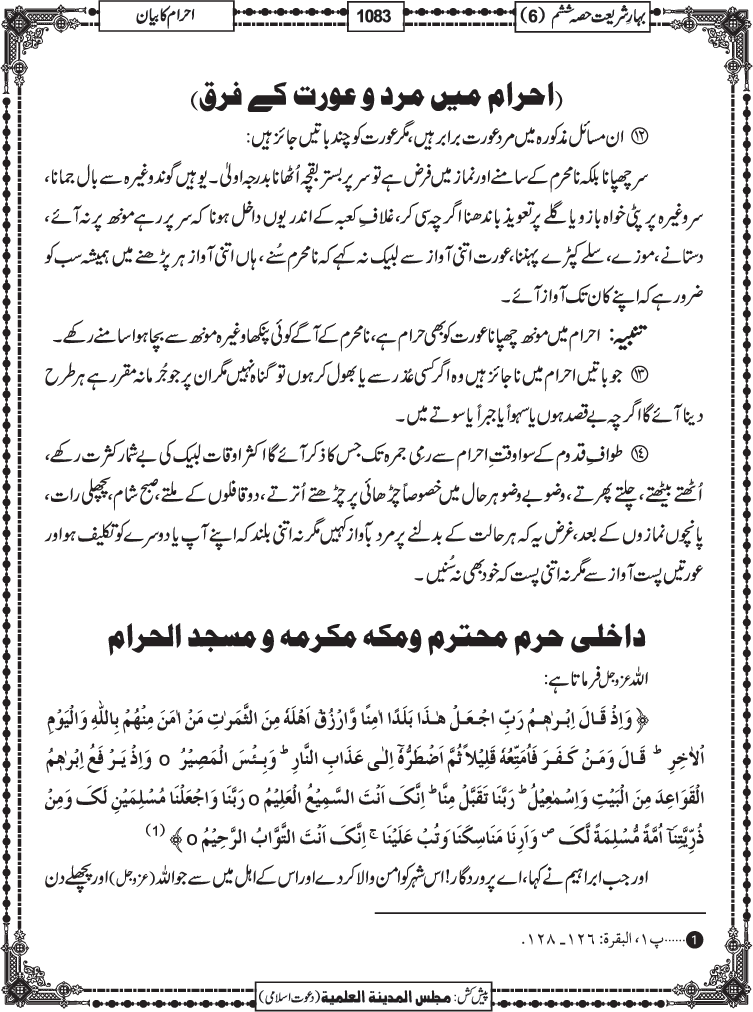 بہارِ شریعت حصہ ششم (6)
1083
احرام کا بیان
(احرام میں مرد و عورت کے فرق)
⑫ ان مسائل مذکورہ میں مرد عورت برابر ہیں، مگر عورت کو چند باتیں جائز ہیں:
سر چھپانا بلکہ نامحرم کے سامنے اور نماز میں فرض ہے تو سر پر بستر بقچہ اُٹھانا بدرجہ اولیٰ۔ یوہیں گوند وغیرہ سے بال جمانا،
سر وغیرہ پر پٹی خواہ بازو یا گلے پر تعویذ باندھنا اگرچہ سی کر، غلافِ کعبہ کے اندر یوں داخل ہونا کہ سر پر رہے مونھ پر نہ آئے،
دستانے، موزے، سلے کپڑے پہننا، عورت اتنی آواز سے لبیک نہ کہے کہ نامحرم سُنے، ہاں اتنی آواز ہر پڑھنے میں ہمیشہ سب کو
ضرور ہے کہ اپنے کان تک آواز آئے۔
تنبیہ: احرام میں مونھ چھپانا عورت کو بھی حرام ہے، نامحرم کے آگے کوئی پنکھا وغیرہ مونھ سے بچا ہوا سامنے رکھے۔
⑬ جو باتیں احرام میں ناجائز ہیں وہ اگر کسی عُذر سے یا بھول کر ہوں تو گناہ نہیں مگر ان پر جو جُرمانہ مقرر ہے ہر طرح
دینا آئے گا اگرچہ بے قصد ہوں یا سہواً یا جبراً یا سوتے میں۔
⑭ طوافِ قدوم کے سوا وقتِ احرام سے رمی جمرہ تک جس کا ذکر آئے گا اکثر اوقات لبیک کی بے شمار کثرت رکھے،
اُٹھتے بیٹھتے، چلتے پھرتے، وضو بے وضو ہر حال میں خصوصاً چڑھائی پر چڑھتے اُترتے، دو قافلوں کے ملتے، صبح شام، پچھلی رات،
پانچوں نمازوں کے بعد، غرض یہ کہ ہر حالت کے بدلنے پر مرد بآواز کہیں مگر نہ اتنی بلند کہ اپنے آپ یا دوسرے کو تکلیف ہو اور
عورتیں پست آواز سے مگر نہ اتنی پست کہ خود بھی نہ سُنیں۔
داخلی حرم محترم و مکہ مکرمہ و مسجد الحرام
اللہ عزوجل فرماتا ہے:
﴿ وَاِذْ قَالَ اِبْرٰهٖمُ رَبِّ اجْعَلْ هٰذَا بَلَدًا اٰمِنًا وَّارْزُقْ اَهْلَهٗ مِنَ الثَّمَرٰتِ مَنْ اٰمَنَ مِنْهُمْ بِاللّٰهِ وَالْيَوْمِ
الْاٰخِرِ ؕ قَالَ وَمَنْ كَفَرَ فَاُمَتِّعُهٗ قَلِيْلًا ثُمَّ اَضْطَرُّهٗۤ اِلٰى عَذَابِ النَّارِ ؕ وَبِئْسَ الْمَصِيْرُ o وَاِذْ يَرْفَعُ اِبْرٰهٖمُ
الْقَوَاعِدَ مِنَ الْبَيْتِ وَاِسْمٰعِيْلُ ؕ رَبَّنَا تَقَبَّلْ مِنَّا ؕ اِنَّكَ اَنْتَ السَّمِيْعُ الْعَلِيْمُ o رَبَّنَا وَاجْعَلْنَا مُسْلِمَيْنِ لَكَ وَمِنْ
ذُرِّيَّتِنَاۤ اُمَّةً مُّسْلِمَةً لَّكَ ص وَاَرِنَا مَنَاسِكَنَا وَتُبْ عَلَيْنَا ۚ اِنَّكَ اَنْتَ التَّوَّابُ الرَّحِيْمُ o ﴾ (1)
اور جب ابراہیم نے کہا، اے پروردگار! اس شہر کو امن والا کر دے اور اس کے اہل میں سے جو اللہ (عزوجل) اور پچھلے دن
❶ ......پ١، البقرة: ١٢٦ـ١٢٨.
پیش کش: مجلس المدینة العلمیة (دعوت اسلامی)